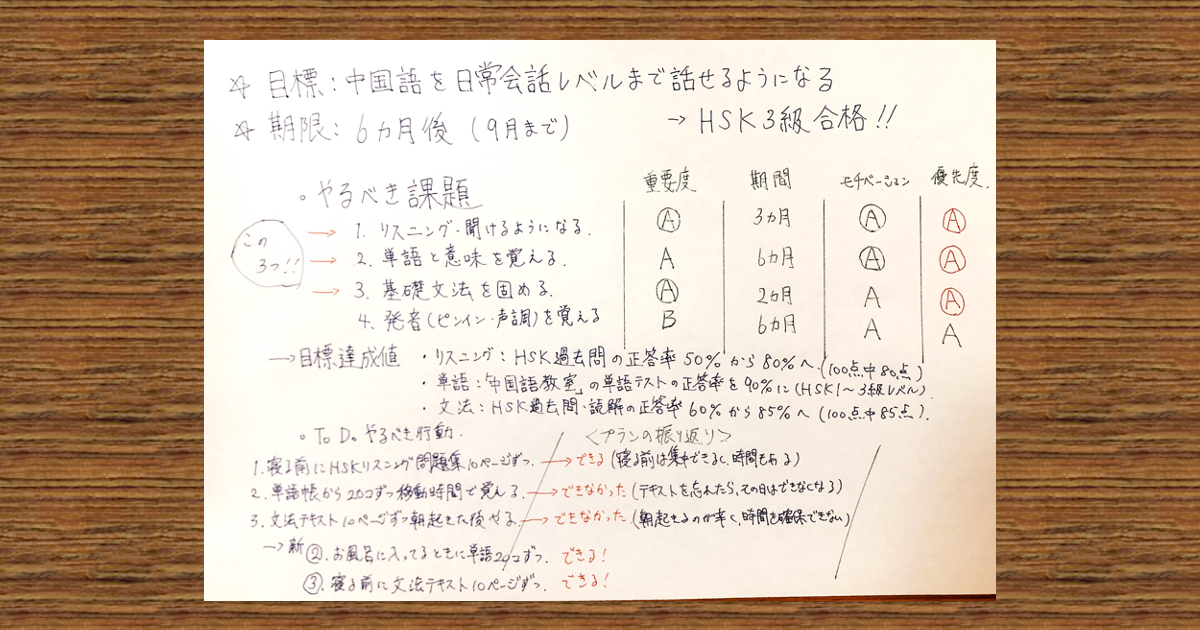 ☆ 目標：中国語を日常会話レベルまで話せるようになる
☆ 期限：6ヵ月後（9月まで） → HSK3級合格!!
。やるべき課題 重要度 期間 モチベーション 優先度.
この3つ!!
→ 1. リスニング・聞けるようになる. Ⓐ 3ヵ月 Ⓐ Ⓐ
→ 2. 単語と意味を覚える. A 6ヵ月 Ⓐ Ⓐ
→ 3. 基礎文法を固める. Ⓐ 2ヵ月 A Ⓐ
4. 発音（ピンイン・声調）を覚える B 6ヵ月 A A
→目標達成値 ・リスニング：HSK過去問の正答率50%から80%へ.（100点中80点）
・単語：「中国語教室」の単語テストの正答率を90%に（HSK1～3級レベル）.
・文法：HSK過去問・読解の正答率60%から85%へ（100点中85点）.
。To Do. やるべき行動. ＜プランの振り返り＞
1. 寝る前にHSKリスニング問題集10ページずつ. →できる（寝る前は集中できるし、時間もある）
2. 単語帳から20コずつ移動時間で覚える. →できなかった（テキストを忘れたら、その日はできなくなる）
3. 文法テキスト10ページずつ朝起きた後やる. →できなかった.（朝起きるのが辛く、時間を確保できない）
→新②. お風呂に入ってるときに単語20コずつ. できる!
③. 寝る前に文法テキスト10ページずつ. できる!